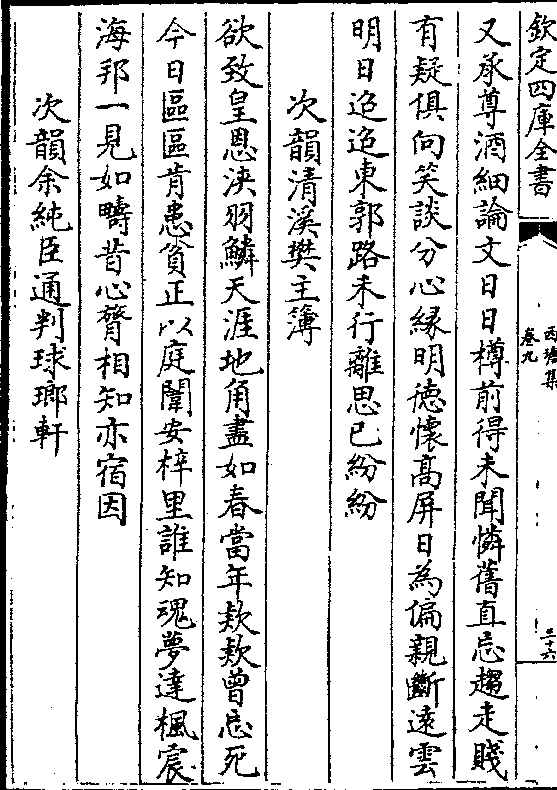 欽定四庫全書
西塘集
卷九
三十六
又承尊酒細論文日日樽前得未聞憐舊直忘趨走賤
有疑俱向笑談分心緣明徳懷髙屏日為偏親斷逺雲
明日迢迢東郭路未行離思已紛紛
次韻清溪樊主簿
欲致皇恩浹羽鱗天涯地角盡如春當年欵欵曽忘死
今日區區肯患貧正以庭闈安梓里誰知魂夢達楓宸
海邦一見如疇昔心膂相知亦宿因
次韻余純臣通判球瑯軒